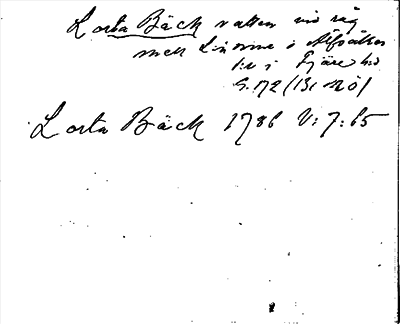 Lorta Bäck vatten vid råg
med Linorne i Alfvåkter
1:r i Fjäre hd
S. 172 (131 nö)
Lorta Bäck 1786 V:7:65